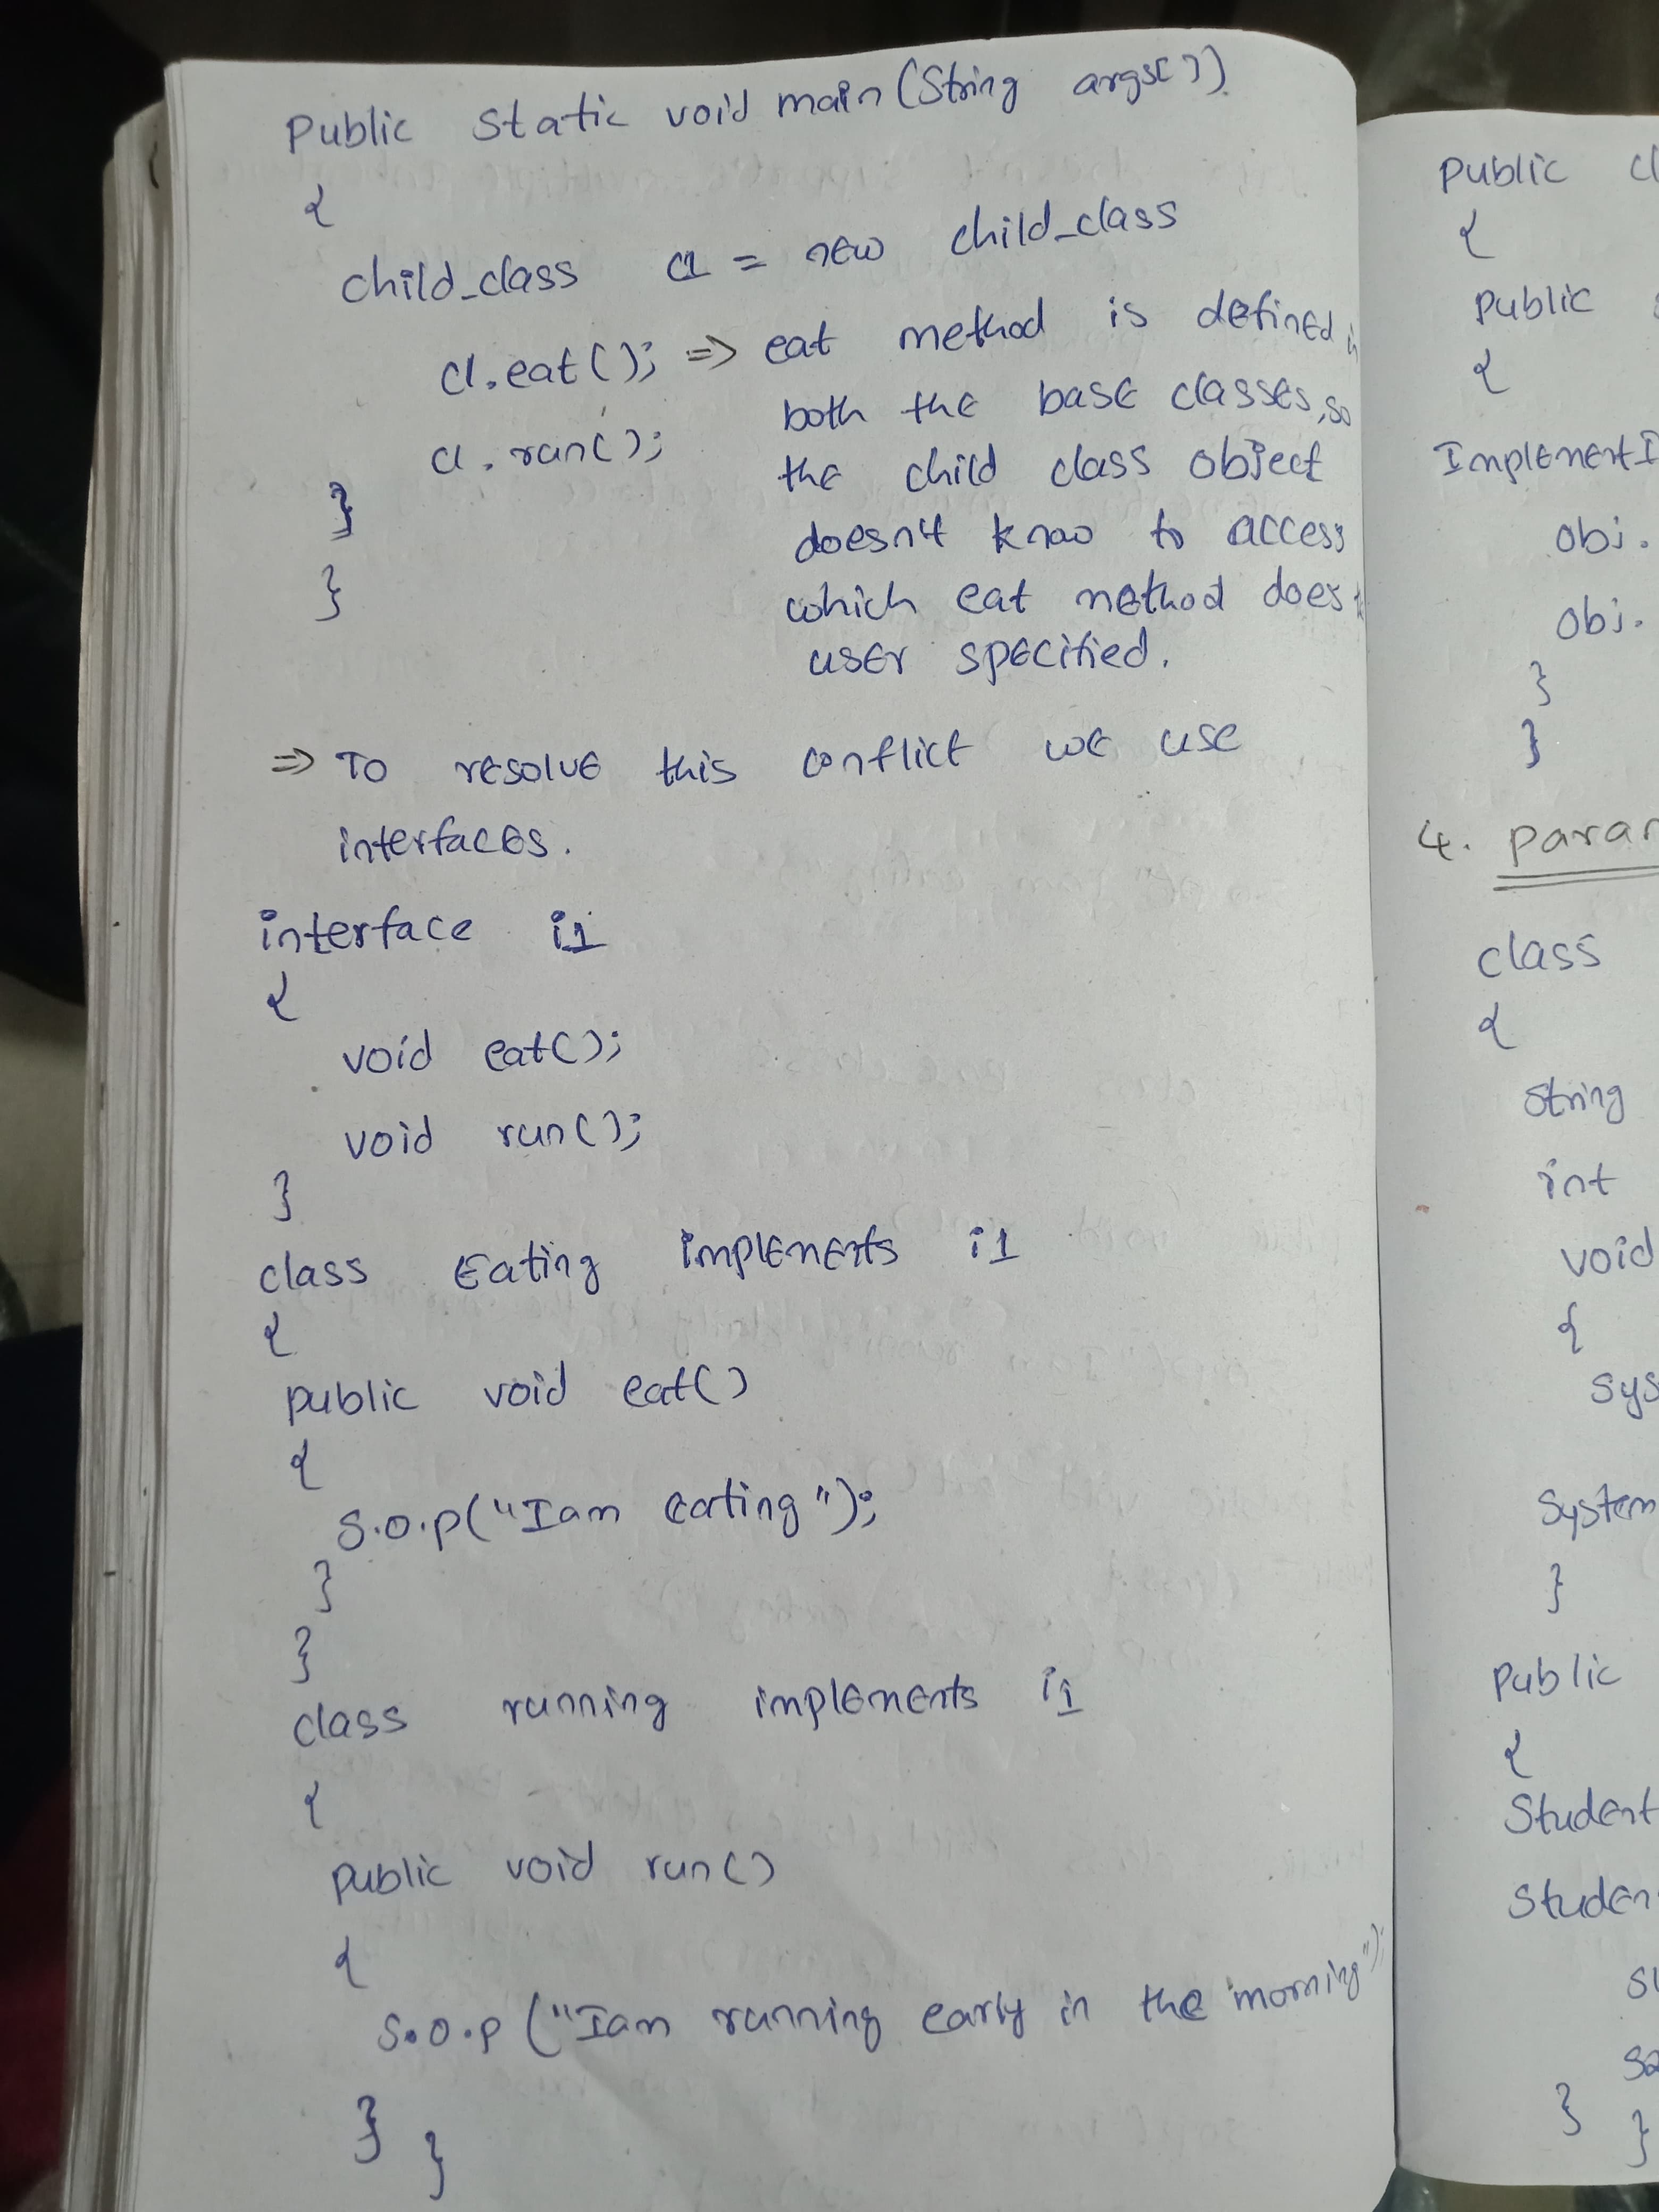 Public static void main(String args[])
{
child_class c1 = new child_class
c1.eat(); => eat method is defined
both the base classes, so
c1.run();
the child class object
}
doesn't know to access
}
which eat method does
user specified.
=> To resolve this conflict we use
interfaces.
interface i1
{
void eat();
void run();
}
class Eating implements i1
{
public void eat()
{
S.O.P("Iam eating");
}
}
class running implements i1
{
public void run()
{
S.O.P ("Iam running early in the morning");
} }
Public cl
{
Public
{
ImplementI
obj.
obj.
}
}
4. Param
class
{
String
int
void
{
Sys
System
}
Public
{
Student
Studen
}
}